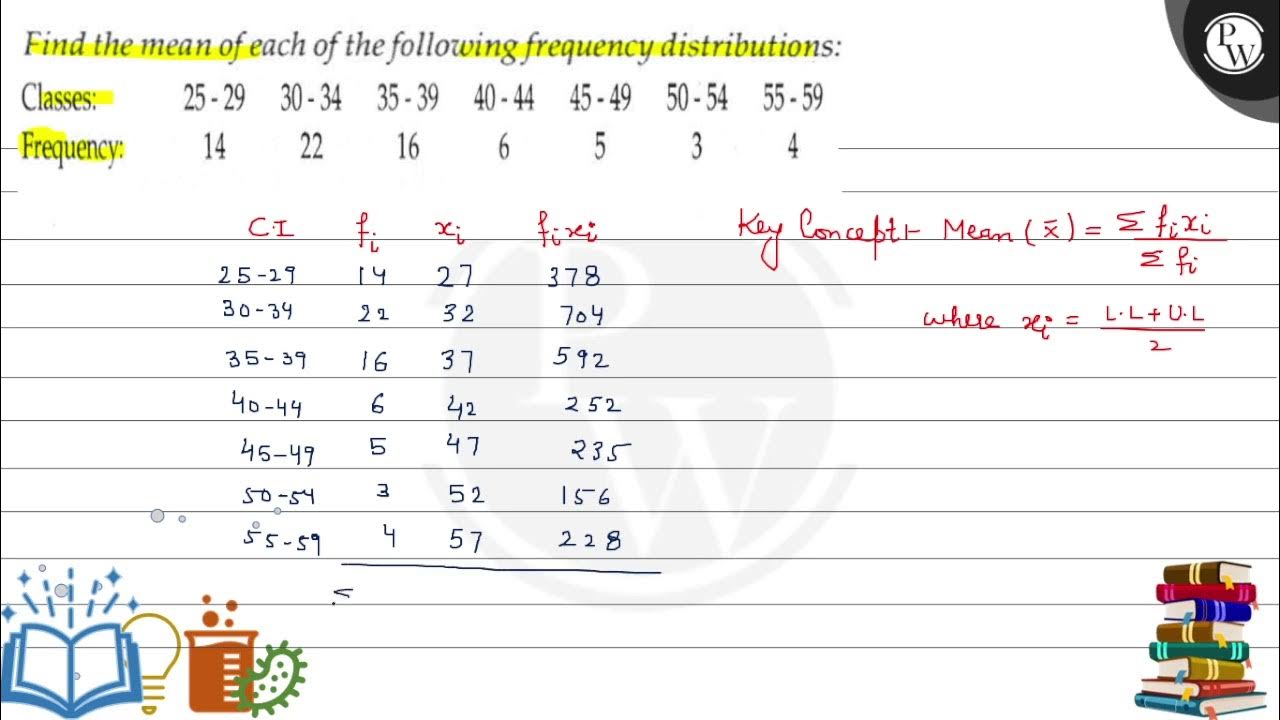 Find the mean of each of the following frequency distributions:
Classes: 25 - 29 30 - 34 35 - 39 40 - 44 45 - 49 50 - 54 55 - 59
Frequency: 14 22 16 6 5 3 4
C.I fi xi fixi
25-29 14 27 378
30-34 22 32 704
35-39 16 37 592
40-44 6 42 252
45-49 5 47 235
50-54 3 52 156
55-59 4 57 228
Key Concept- Mean (x̄) = Σ fixi / Σ fi
where xi = L.L + U.L / 2
P
W
P
W